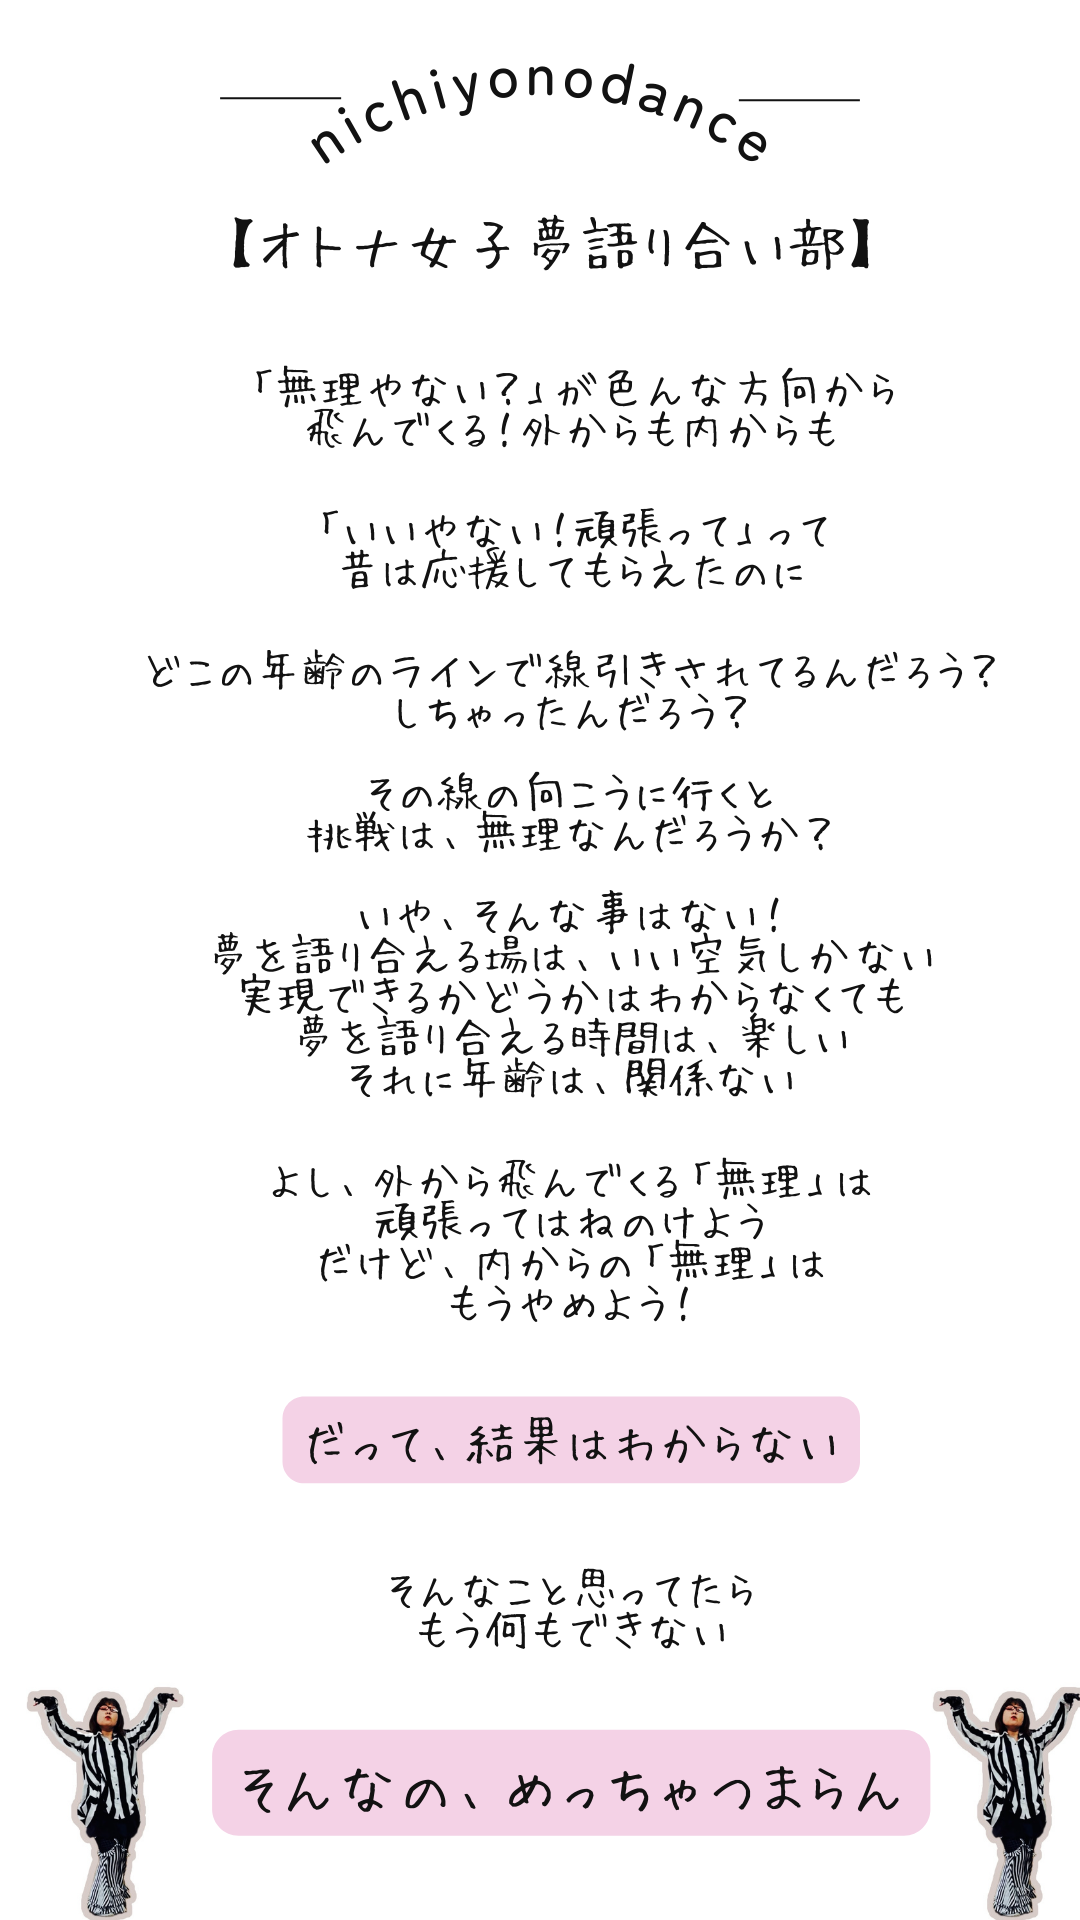 nichiyonodance
【オトナ女子夢語り合い部】
「無理やない？」が色んな方向から
飛んでくる！外からも内からも
「いいやない！頑張って」って
昔は応援してもらえたのに
どこの年齢のラインで線引きされてるんだろう？
しちゃったんだろう？
その線の向こうに行くと
挑戦は、無理なんだろうか？
いや、そんな事はない！
夢を語り合える場は、いい空気しかない
実現できるかどうかはわからなくても
夢を語り合える時間は、楽しい
それに年齢は、関係ない
よし、外から飛んでくる「無理」は
頑張ってはねのけよう
だけど、内からの「無理」は
もうやめよう！
だって、結果はわからない
そんなこと思ってたら
もう何もできない
そんなの、めっちゃつまらん